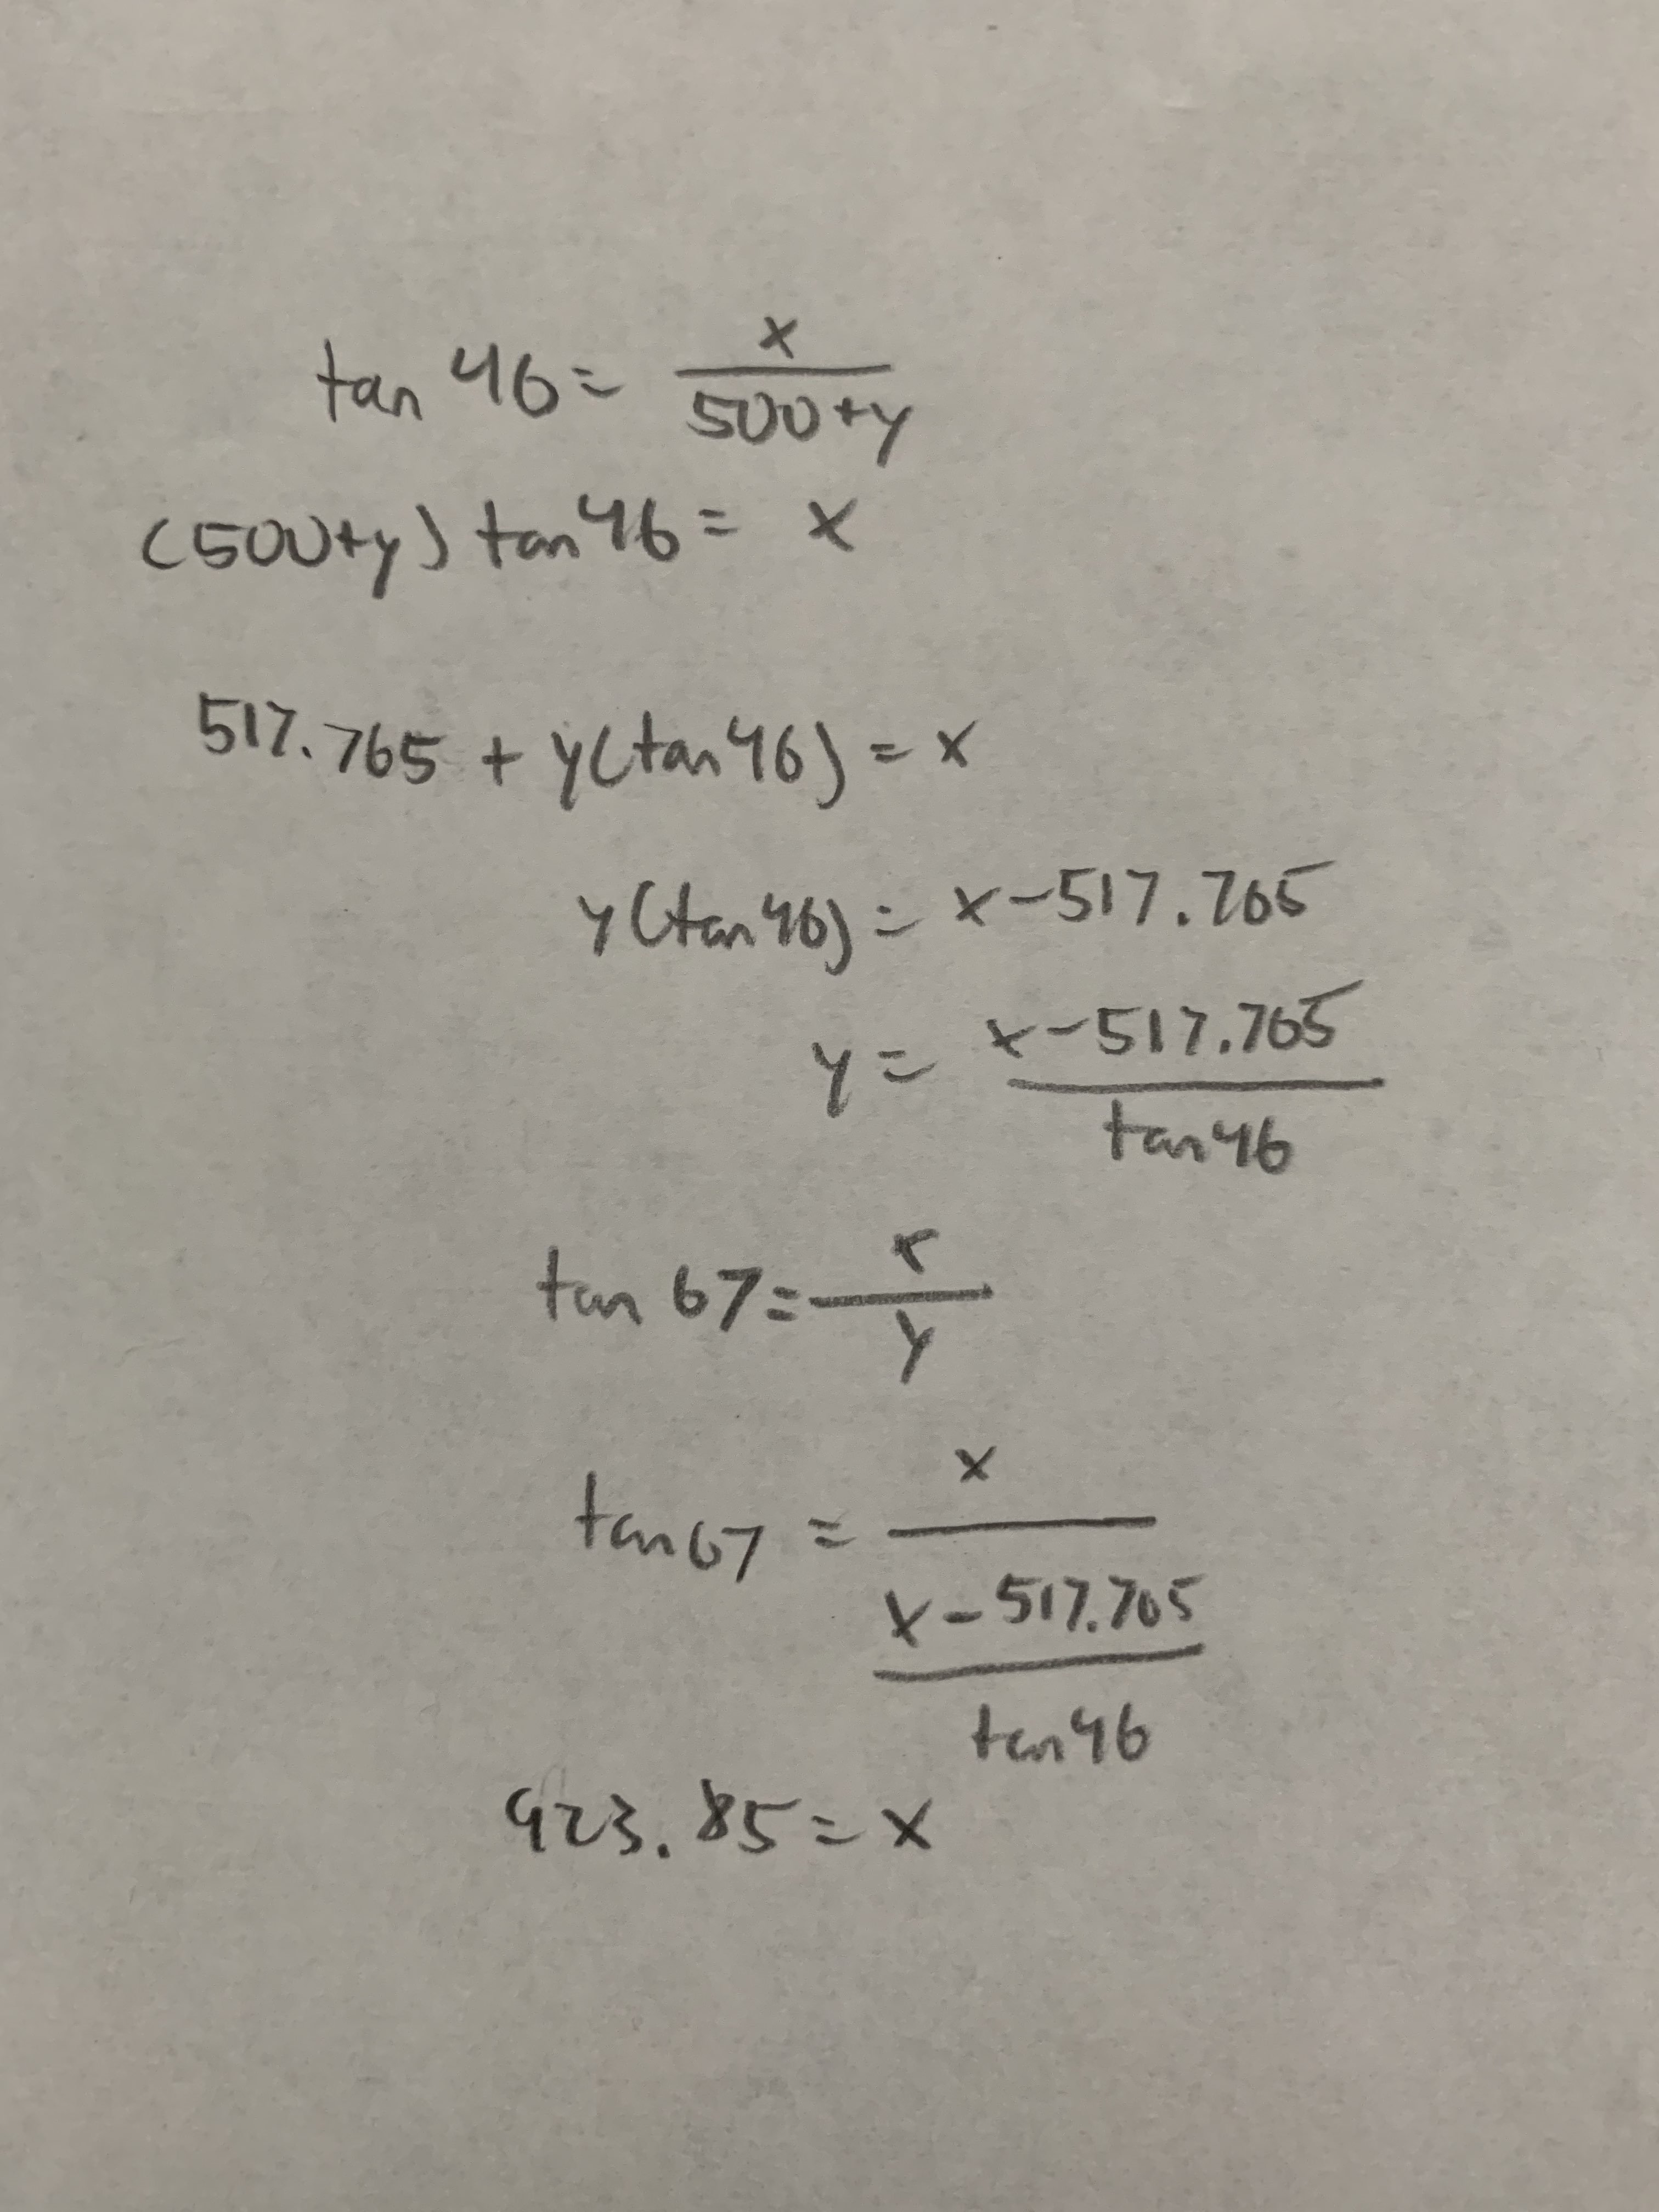 tan 46 = x / 500+y
(500+y) tan 46 = x
517.765 + y(tan 46) = x
y(tan 46) = x - 517.765
y = x - 517.765 / tan 46
tan 67 = x / y
tan 67 = x / x - 517.765 / tan 46
923.85 = x